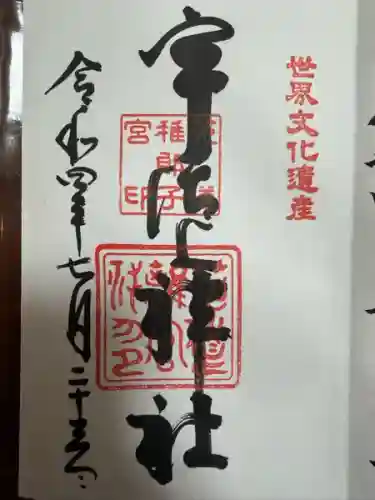 世界文化遺産
宇治上神社
菟道
稚郎子
宮印
令和四年七月二十五日